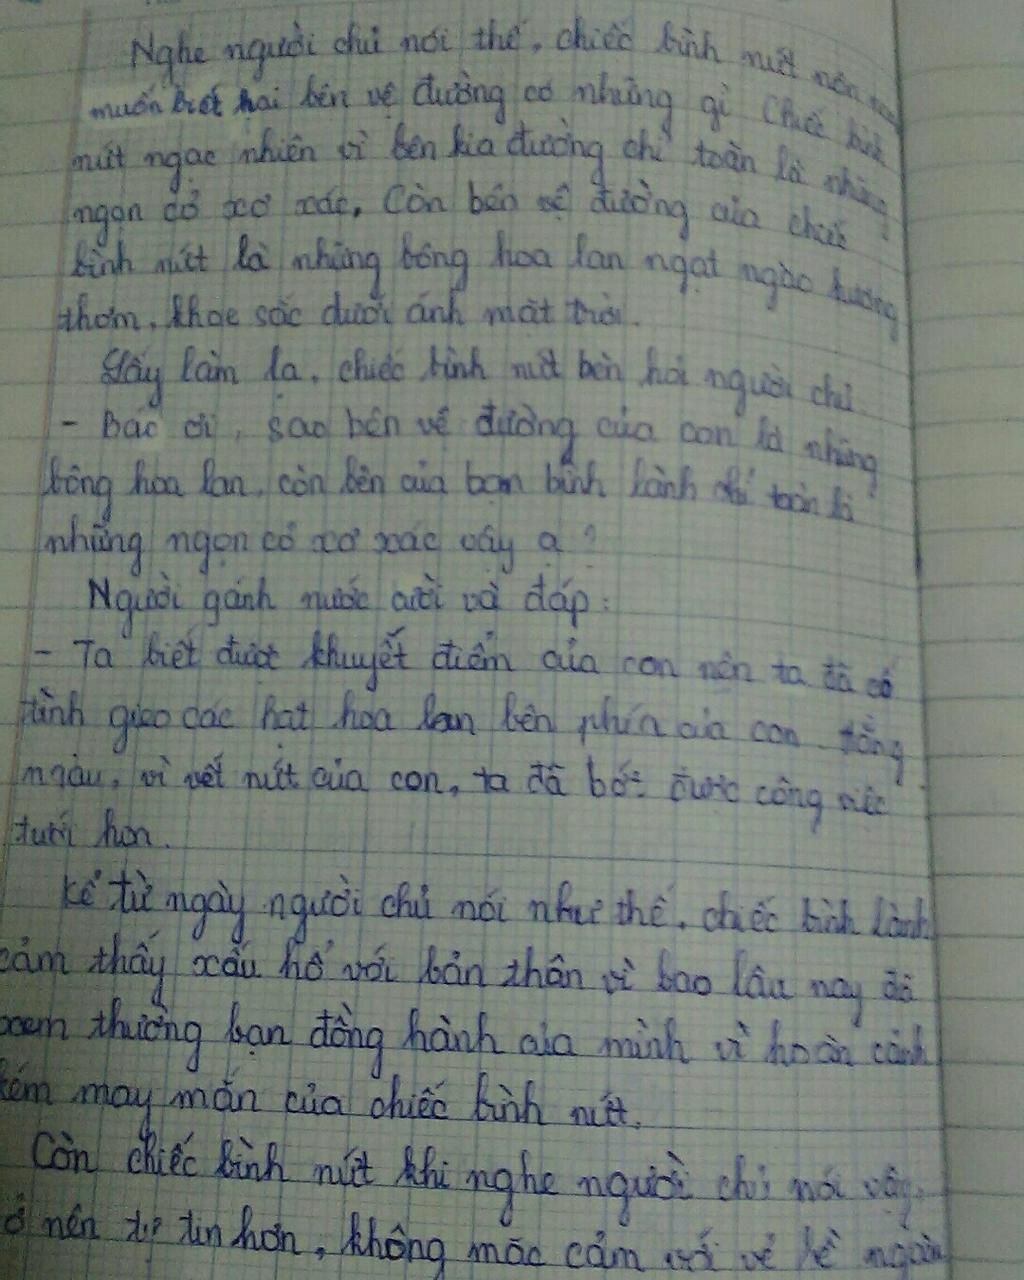 Nghe người chủ nói thế, chiếc bình nứt nôn nao
muốn biết hai bên vệ đường có những gì. Chiếc bình
nứt ngạc nhiên vì bên kia đường chỉ toàn là những
ngọn cỏ xơ xác. Còn bên vệ đường của chiếc
bình nứt là những bông hoa lan ngạt ngào hương
thơm, khoe sắc dưới ánh mặt trời.
Thấy làm lạ, chiếc bình nứt bèn hỏi người chủ.
- Bác ơi, sao bên vệ đường của con là những
bông hoa lan, còn bên của bạn bình lành chỉ toàn là
những ngọn cỏ xơ xác vậy ạ?
Người gánh nước cười và đáp:
- Ta biết được khuyết điểm của con nên ta đã cố
tình gieo các hạt hoa lan bên phía của con. Hằng
ngày, vì vết nứt của con, ta đã bớt được công việc
tưới hơn.
Kể từ ngày người chủ nói như thế, chiếc bình lành
cảm thấy xấu hổ với bản thân vì bao lâu nay đã
xem thường bạn đồng hành của mình vì hoàn cảnh
kém may mắn của chiếc bình nứt.
Còn chiếc bình nứt khi nghe người chủ nói vậy,
nên tự tin hơn, không mặc cảm với vẻ bề ngoài